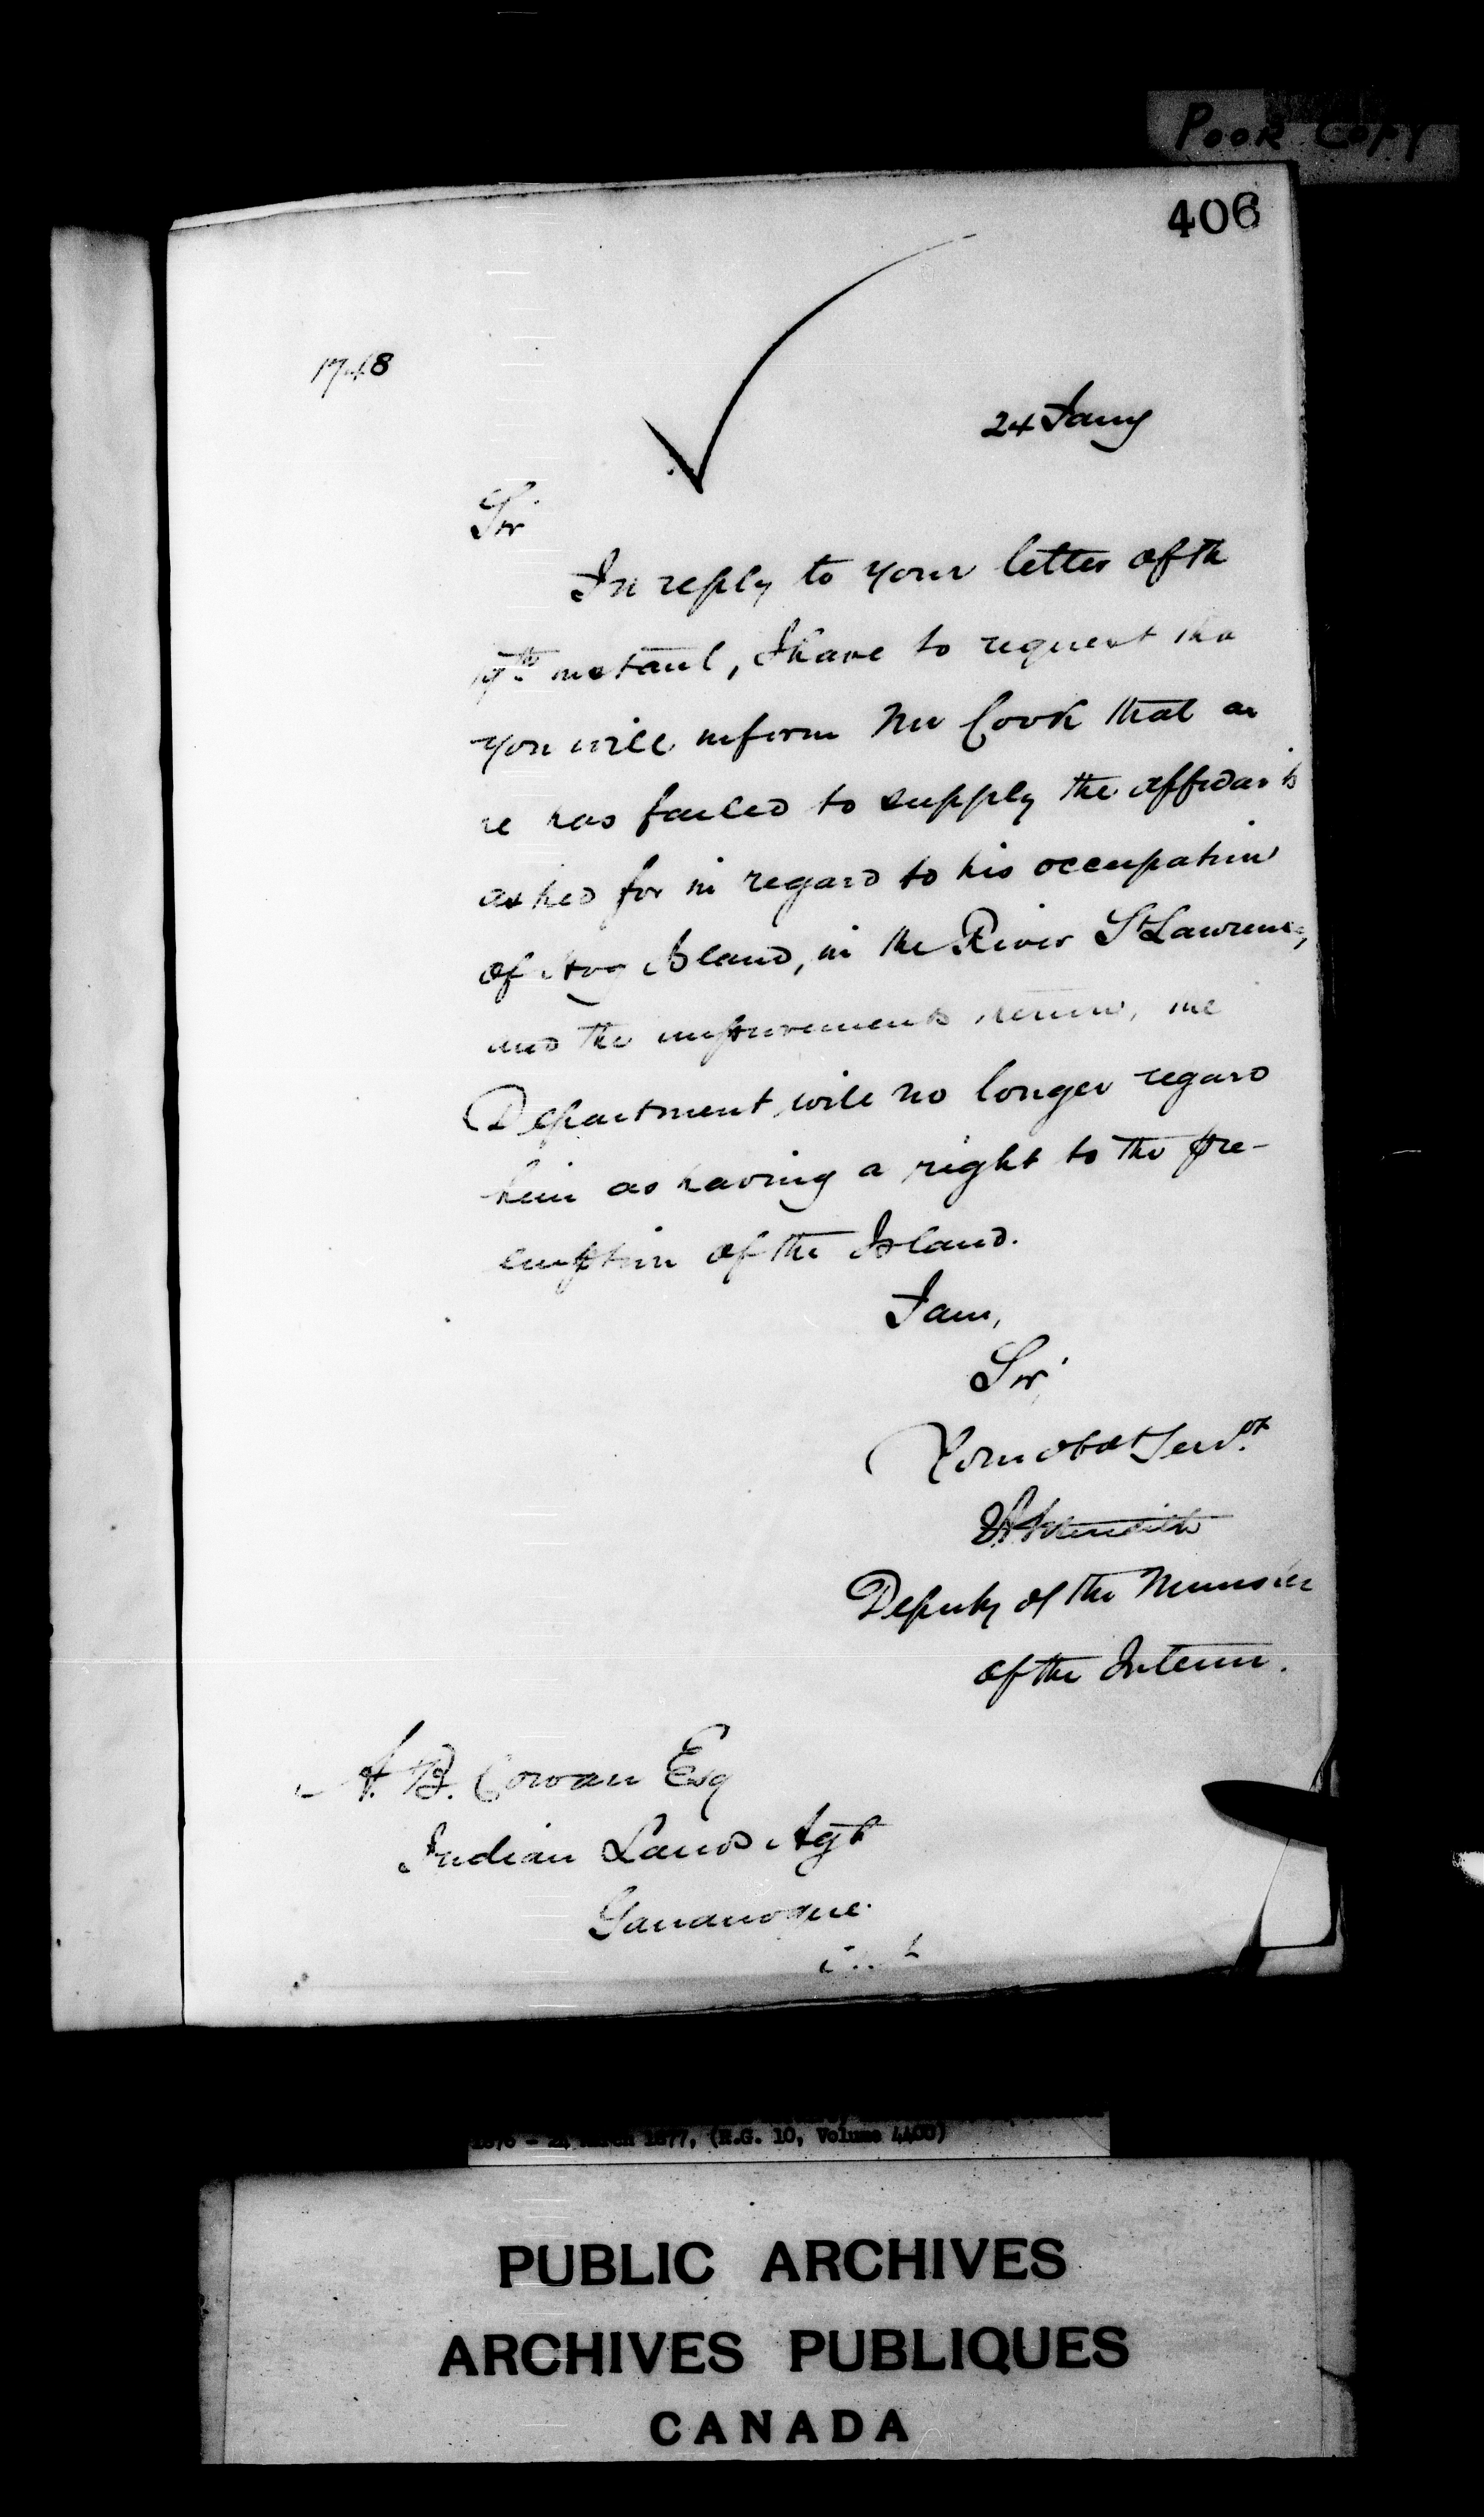 POOR COPY
406
1748
24 Jany
Sir
In reply to your letter of th
19th instant, I have to request tha
you will inform Mr Cook that as
he has failed to supply the affidavits
asked for in regard to his occupation
of Hog Island, in the River St Lawrence,
and the improvements thereon, the
Department will no longer regard
him as having a right to the pre-
emption of the Island.
I am,
Sir,
Your obdt Servt
Meredith
Deputy of the Minister
of the Interior.
A. B. Cowan Esq
Indian Land Agt
Gananoque.
1876 - 24 March 1877, (R.G. 10, Volume 4400)
PUBLIC ARCHIVES
ARCHIVES PUBLIQUES
CANADA